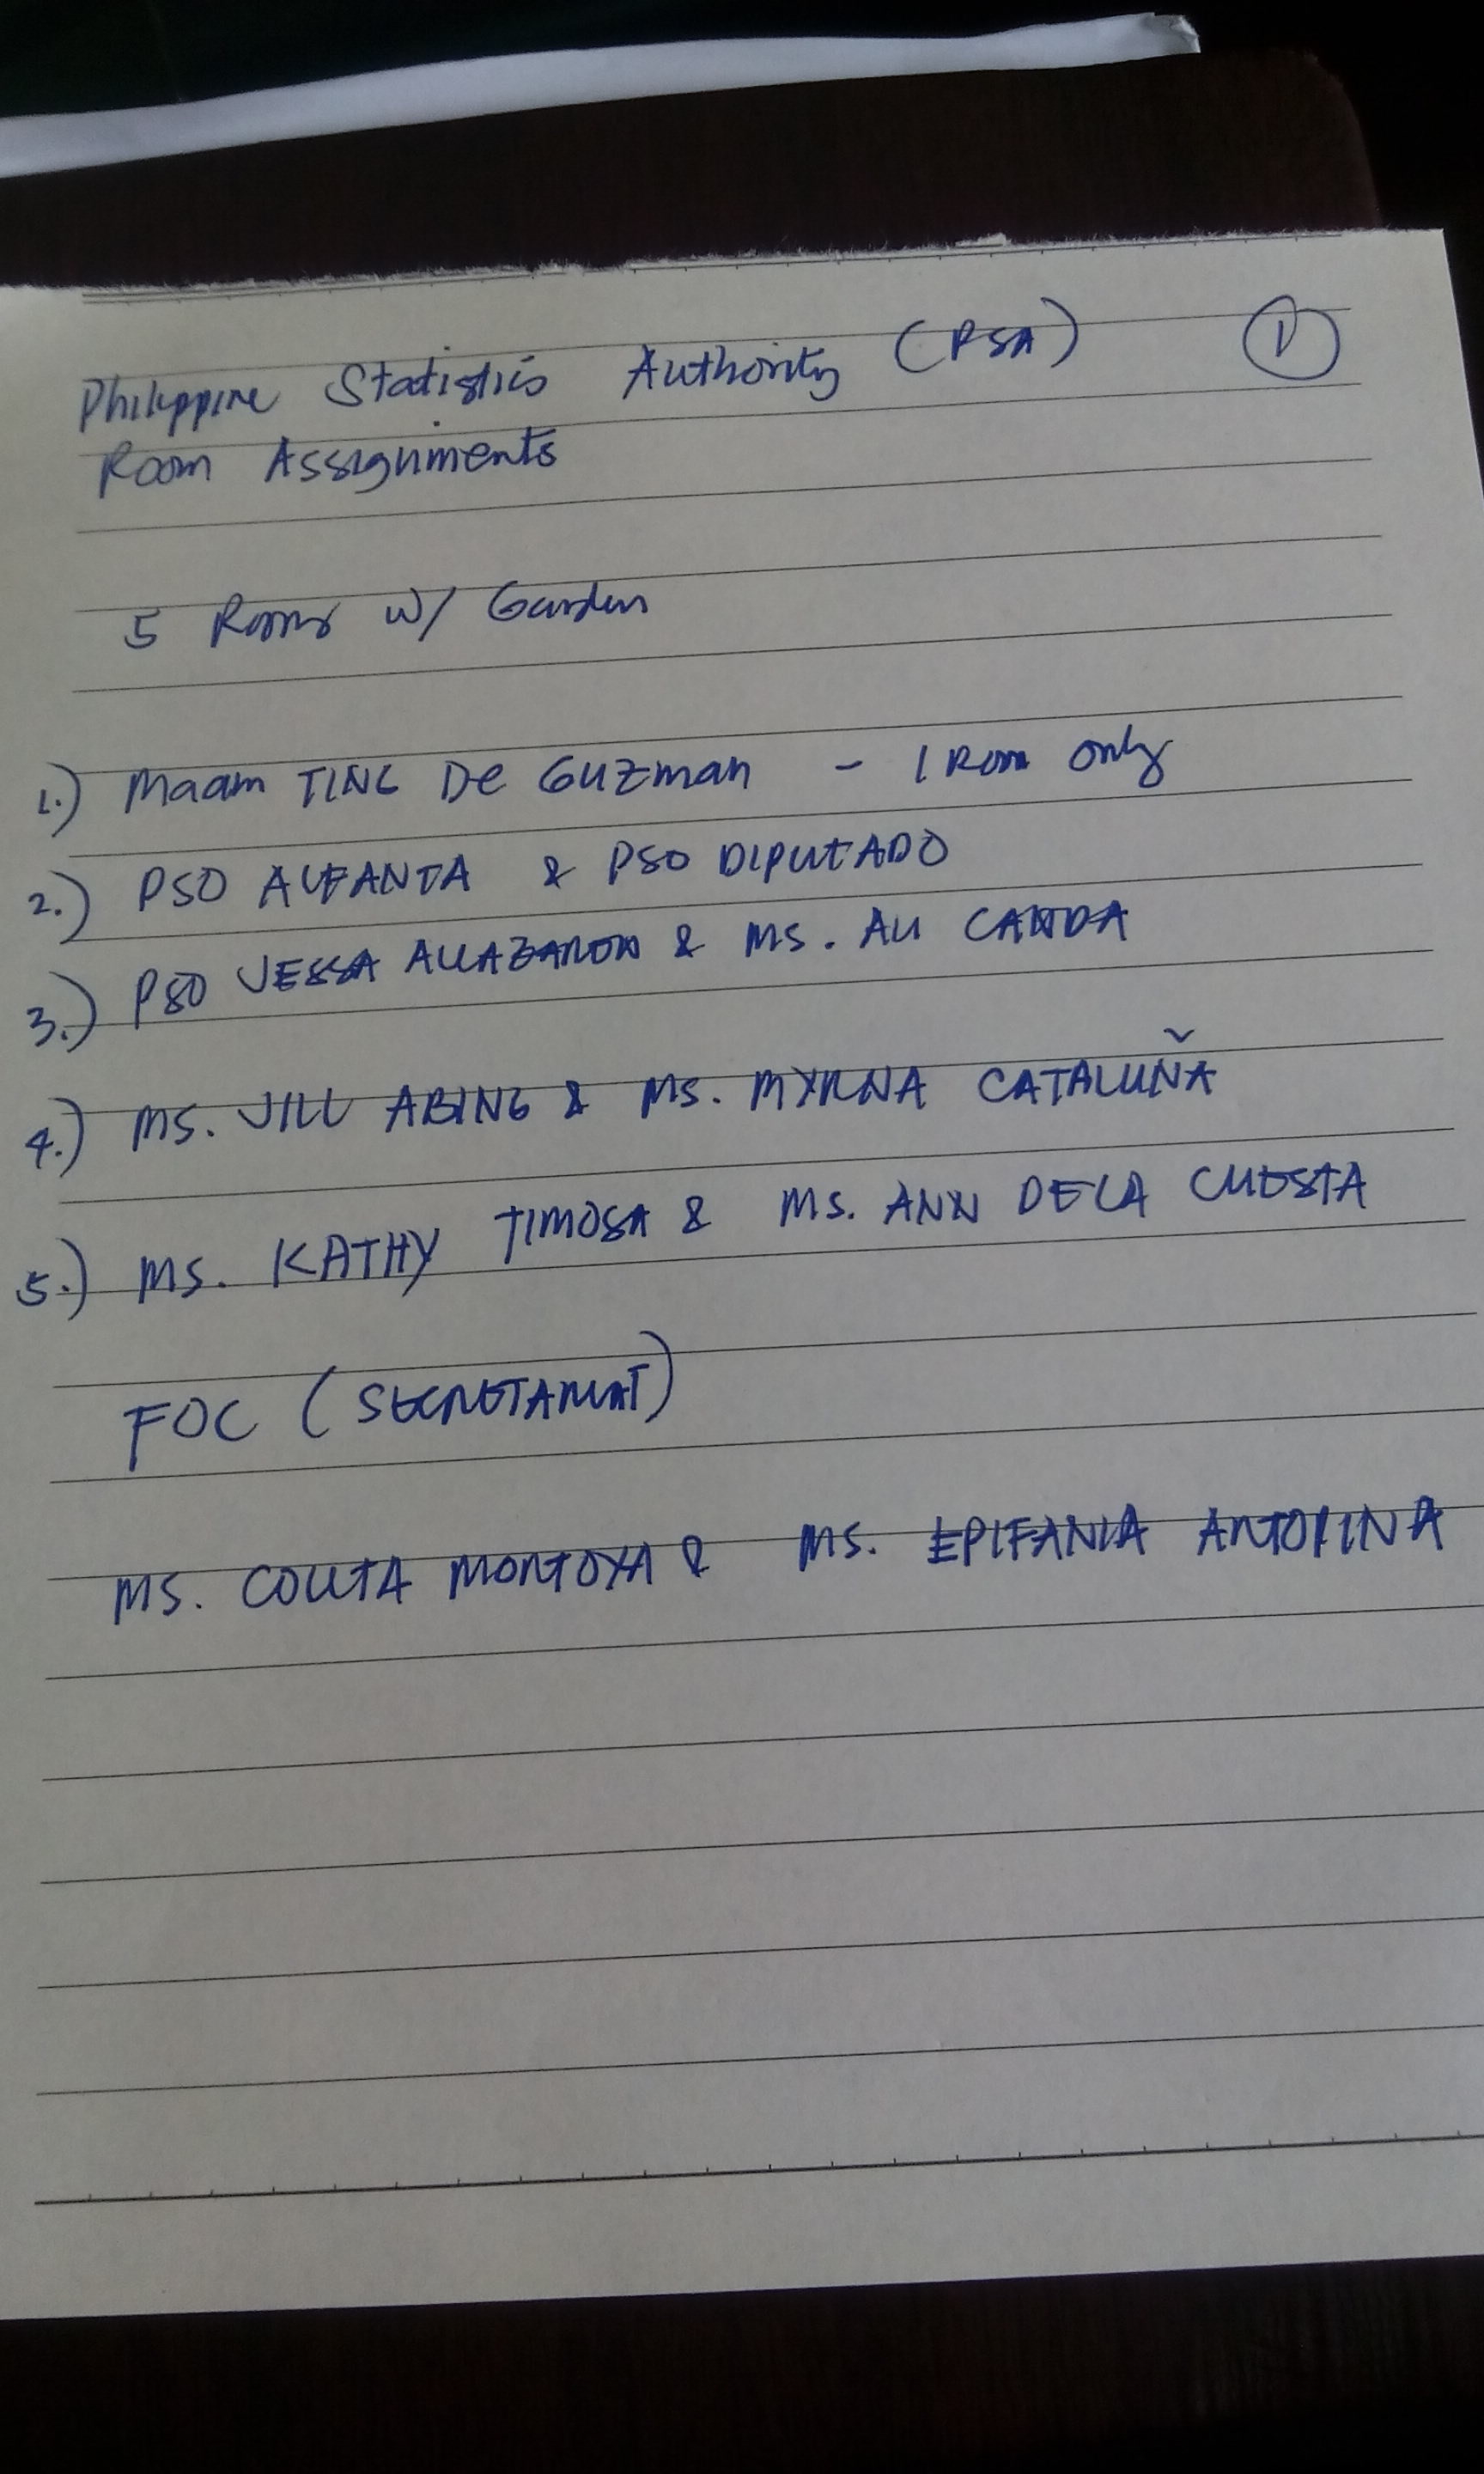 Philippine Statistics Authority (PSA) 1
Room Assignments
5 Rooms w/ Garden
1.) Maam TING De GUZman - 1 Room only
2.) PSO ALFANTA & PSO DIPUTADO
3.) PSO JESSA & MS. ALI CANDA
4.) MS. JILL ABING & MS. MYRNA CATALUÑA
5.) MS. KATHY TIMOSA & MS. ANN DELA CUESTA
FOC (SECRETARIAT)
MS. COLLITA MONTOYA & MS. EPIFANIA ANTOPINA